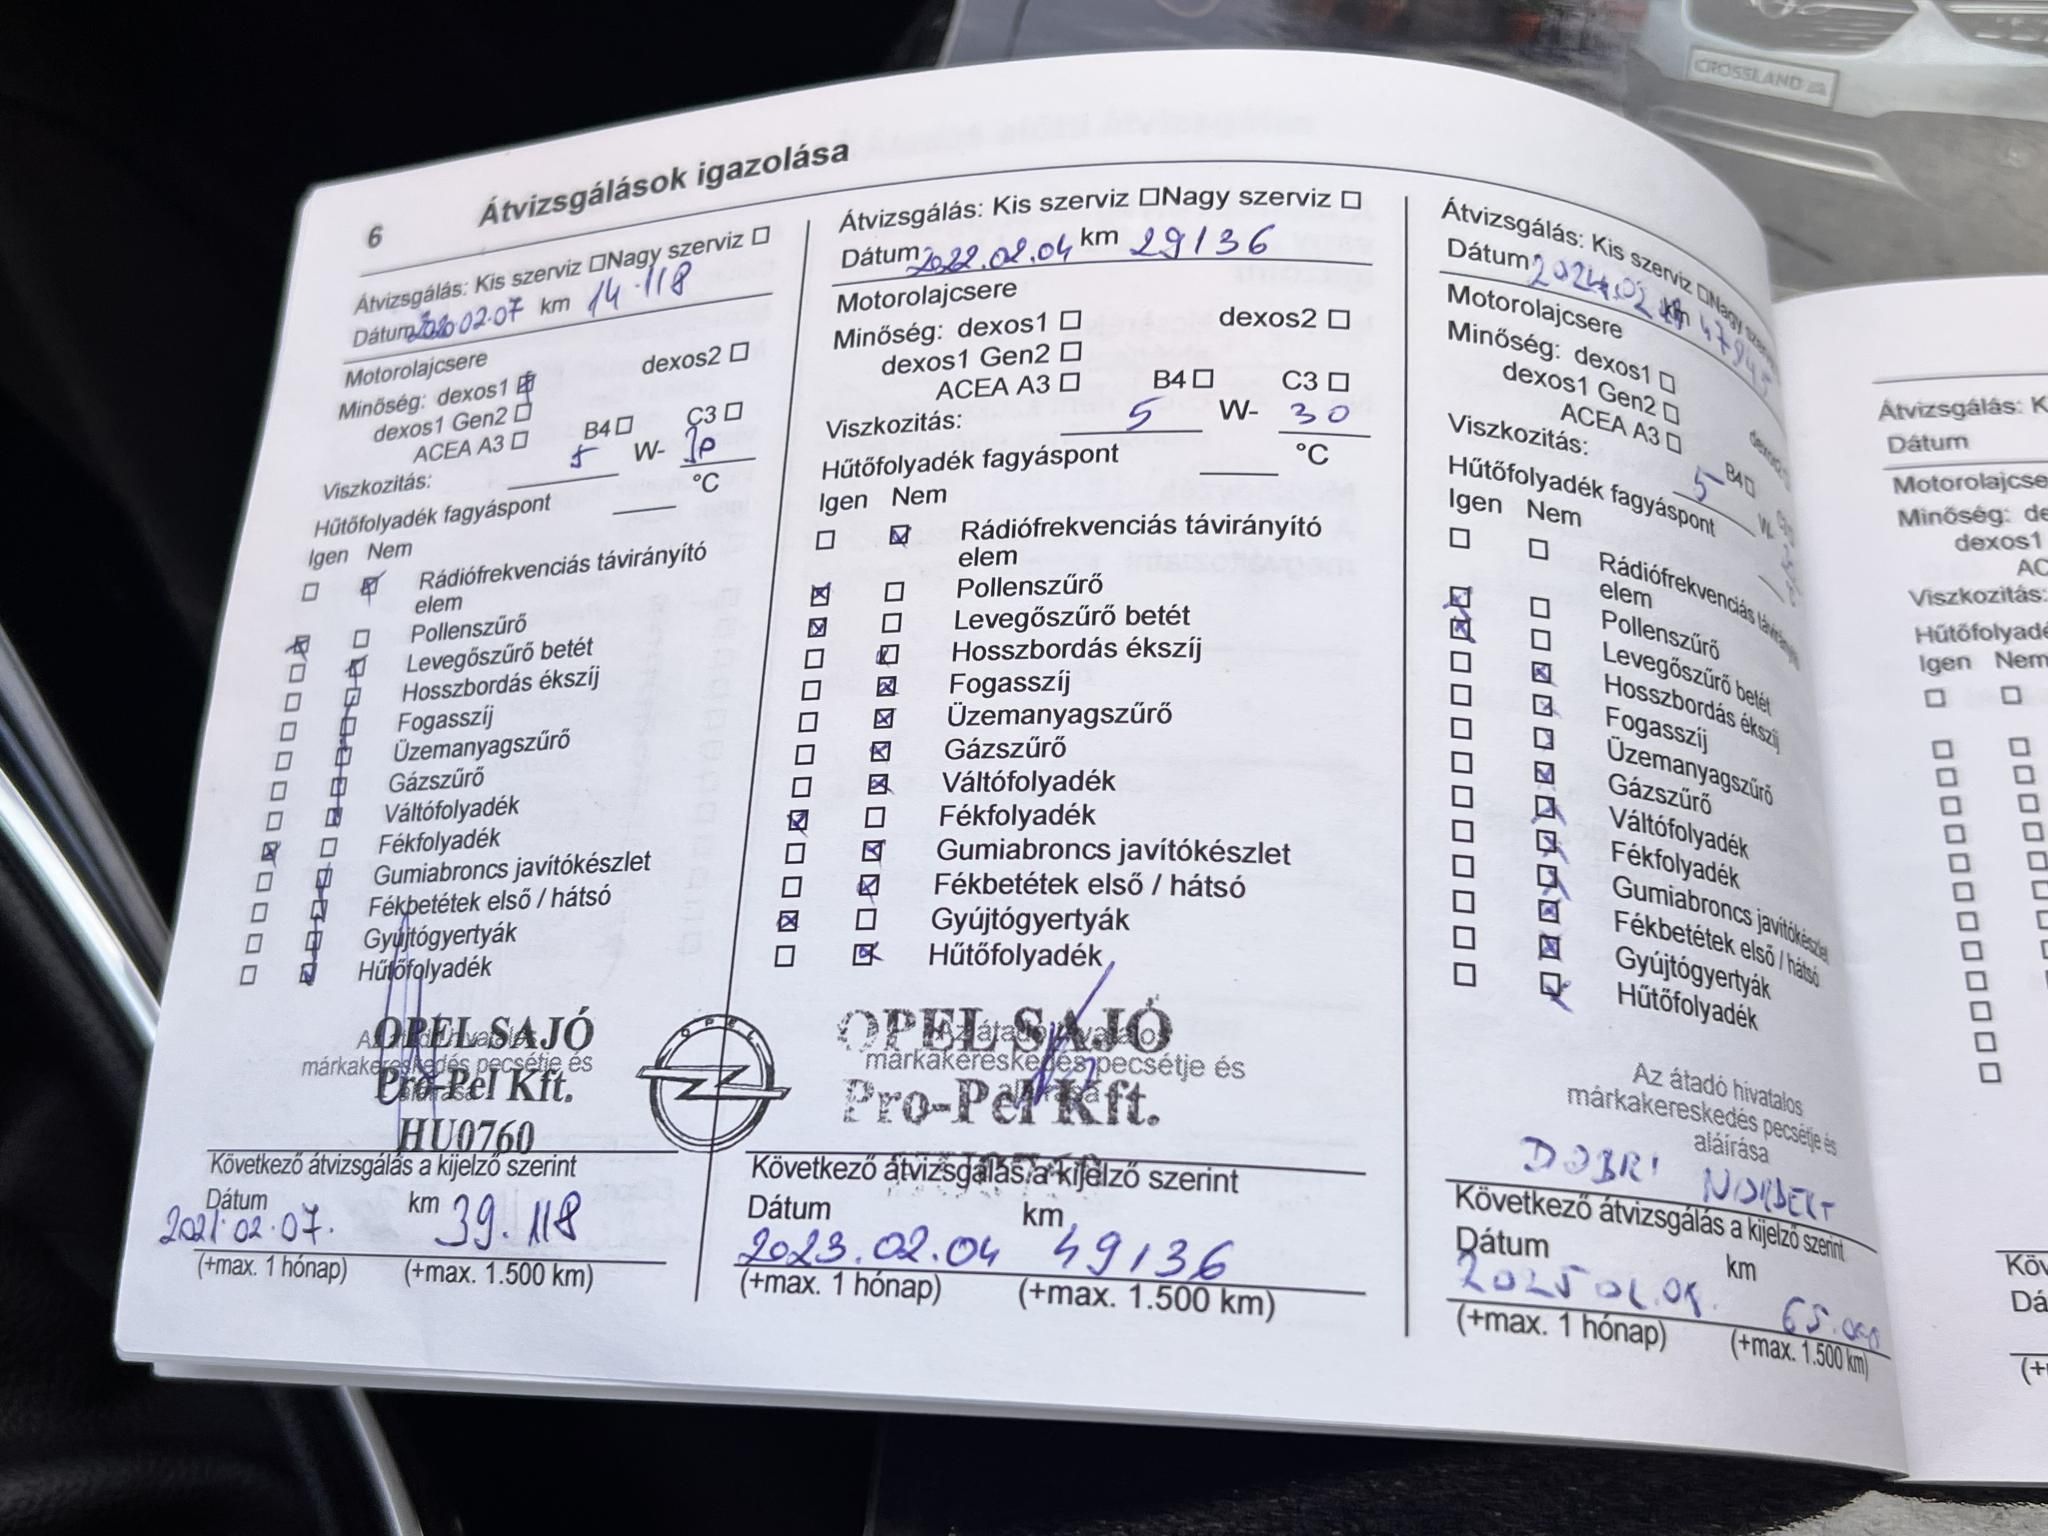 CROSSLAND
6
Átvizsgálások igazolása
Átvizsgálás: Kis szerviz ☐Nagy szerviz ☐
Dátum 2020.02.07 km 14.118
Motorolajcsere
Minőség: dexos1 ☒ dexos2 ☐
dexos1 Gen2 ☐
ACEA A3 ☐ B4 ☐ C3 ☐
Viszkozitás: 5 W- 30
Hűtőfolyadék fagyáspont °C
Igen Nem
☐ ☒ Rádiófrekvenciás távirányító
elem
☒ ☐ Pollenszűrő
☐ ☒ Levegőszűrő betét
☐ ☒ Hosszbordás ékszíj
☐ ☒ Fogasszíj
☐ ☒ Üzemanyagszűrő
☐ ☒ Gázszűrő
☐ ☒ Váltófolyadék
☒ ☐ Fékfolyadék
☐ ☒ Gumiabroncs javítókészlet
☐ ☒ Fékbetétek első / hátsó
☐ ☒ Gyújtógyertyák
☐ ☒ Hűtőfolyadék
OPEL SAJÓ
márkakereskedés pecsétje és
Pro-Pel Kft.
HU0760
OPEL
Következő átvizsgálás a kijelző szerint
Dátum km
2021.02.07. 39.118
(+max. 1 hónap) (+max. 1.500 km)
Átvizsgálás: Kis szerviz ☐Nagy szerviz ☐
Dátum 2022.02.04 km 29136
Motorolajcsere
Minőség: dexos1 ☐ dexos2 ☐
dexos1 Gen2 ☐
ACEA A3 ☐ B4 ☐ C3 ☐
Viszkozitás: 5 W- 30
Hűtőfolyadék fagyáspont °C
Igen Nem
☐ ☒ Rádiófrekvenciás távirányító
elem
☒ ☐ Pollenszűrő
☒ ☐ Levegőszűrő betét
☐ ☒ Hosszbordás ékszíj
☐ ☒ Fogasszíj
☐ ☒ Üzemanyagszűrő
☐ ☒ Gázszűrő
☐ ☒ Váltófolyadék
☒ ☐ Fékfolyadék
☐ ☒ Gumiabroncs javítókészlet
☐ ☒ Fékbetétek első / hátsó
☒ ☐ Gyújtógyertyák
☐ ☒ Hűtőfolyadék
OPEL SAJÓ
Az átadó hivatalos
márkakereskedés pecsétje és
Pro-Pel Kft.
Következő átvizsgálás a kijelző szerint
Dátum km
2023.02.04 49136
(+max. 1 hónap) (+max. 1.500 km)
Átvizsgálás: Kis szerviz ☐Nagy szerviz
Dátum km 47945
Motorolajcsere
Minőség: dexos1 ☐ dexos2
dexos1 Gen2 ☐
ACEA A3 ☐ B4 ☐ C3
Viszkozitás: 5 W-
Hűtőfolyadék fagyáspont °C
Igen Nem
☐ ☐ Rádiófrekvenciás távirányító
elem
☒ ☐ Pollenszűrő
☒ ☐ Levegőszűrő betét
☐ ☒ Hosszbordás ékszíj
☐ ☒ Fogasszíj
☐ ☒ Üzemanyagszűrő
☐ ☒ Gázszűrő
☐ ☒ Váltófolyadék
☐ ☒ Fékfolyadék
☐ ☒ Gumiabroncs javítókészlet
☐ ☒ Fékbetétek első / hátsó
☐ ☒ Gyújtógyertyák
☐ ☒ Hűtőfolyadék
Az átadó hivatalos
márkakereskedés pecsétje és
aláírása
DOBRI NORBERT
Következő átvizsgálás a kijelző szerint
Dátum km
65.000
(+max. 1 hónap) (+max. 1.500 km)
Átvizsgálás: K
Dátum
Motorolajcse
Minőség: de
dexos1
AC
Viszkozitás:
Hűtőfolyadé
Igen Nem
Köv
Dá
(+